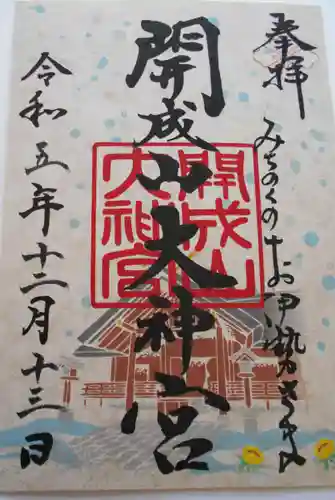 奉拝
みちのくのお伊勢さま
開成山大神宮
開成山大神宮
令和五年十二月十三日